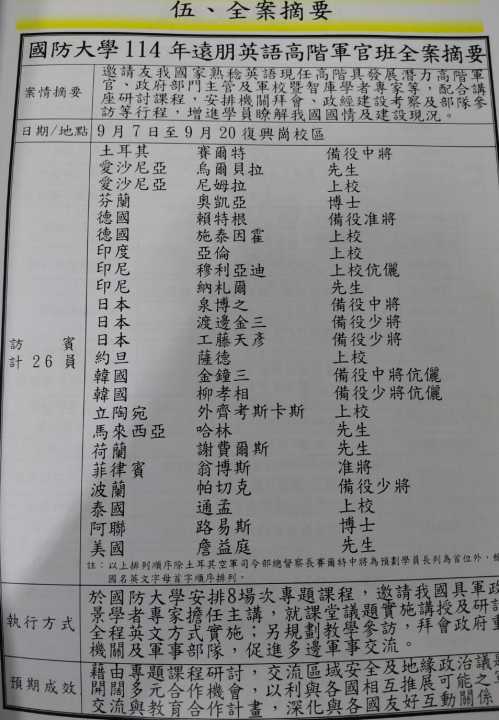 伍、全案摘要
國防大學114年遠朋英語高階軍官班全案摘要
案情摘要
邀請友我國家熟稔英語現任高階具發展潛力高階軍
官、政府部門主管及軍校暨智庫學者專家等，配合講
座研討課程，安排機關拜會、政經建設考察及部隊參
訪等行程，增進學員瞭解我國國情及建設現況。
日期/地點 9月7日至9月20復興崗校區
訪賓
計26員
土耳其 賽爾特 備役中將
愛沙尼亞 烏爾貝拉 先生
愛沙尼亞 尼姆拉 上校
芬蘭 奧凱亞 博士
德國 賴特根 備役准將
德國 施泰因霍 上校
印度 亞倫 上校
印尼 穆利亞迪 上校伉儷
印尼 納札爾 先生
日本 泉博之 備役中將
日本 渡邊金三 備役少將
日本 工藤天彥 備役少將
約旦 薩德 上校
韓國 金鐘三 備役中將伉儷
韓國 柳孝相 備役少將伉儷
立陶宛 外齊考斯卡斯 上校
馬來西亞 哈林 先生
荷蘭 謝費爾斯 先生
菲律賓 翁博斯 准將
波蘭 帕切克 備役少將
泰國 通孟 上校
阿聯 路易斯 博士
美國 詹益庭 先生
註：以上排列順序除土耳其空軍司令部總督察長賽爾特中將為預劃學員長列為首位外，
國名英文字母首字順序排列。
執行方式
於國防大學安排8場次專題課程，邀請我國具軍政
景學者專家擔任主講，就課堂議題實施講授及研討
全程英文方式實施；另規劃教學參訪，拜會政府重
機關及軍事部隊，促進多邊軍事交流。
預期成效
藉由專題課程研討，交流區域安全及地緣政治議題
開闢多元合作機會，以利與各國相互推展可能之軍
交流與教育合作計畫，深化與各國友好互動關係